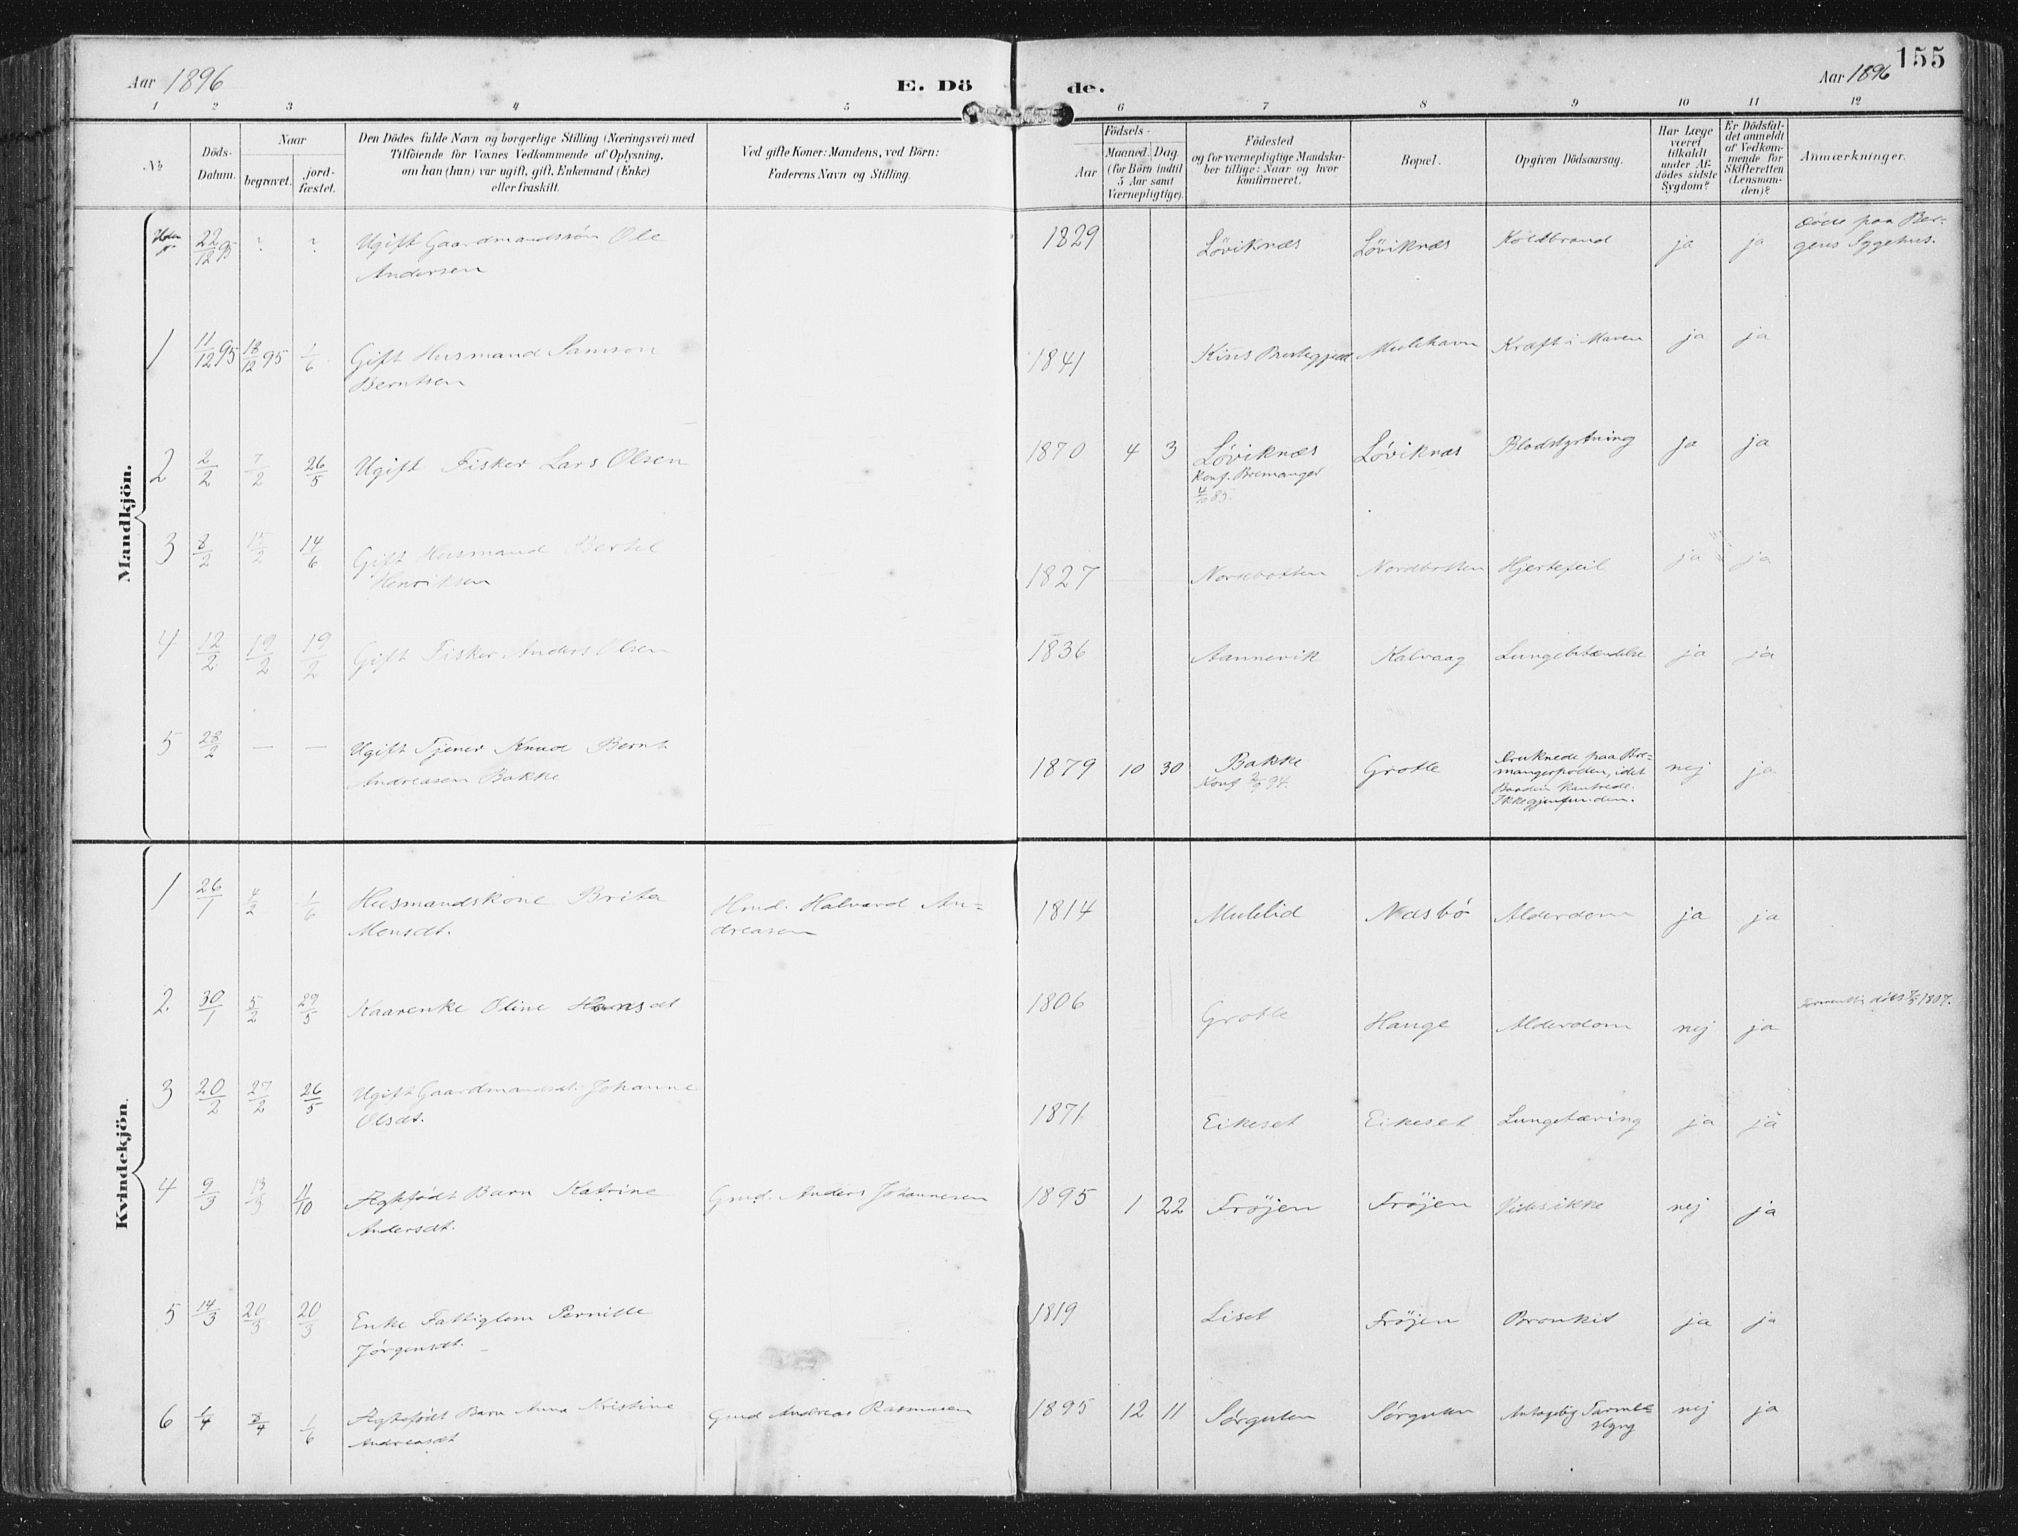 Aar 1896 E. Döde. Aar 1896 155
1 2 3 4 5 6 7 8 9 10 11 12
No.
Döds-
Datum.
Naar
begravet.
jord-
fæstet.
Den Dödes fulde Navn og borgerlige Stilling (Næringsvei) med
Tilföiende for Voxnes Vedkommende af Oplysning,
om han (hun) var ugift, gift, Enkemand (Enke)
eller fraskilt.
Ved gifte Koner: Mandens, ved Börn:
Faderens Navn og Stilling.
Födsels-
Aar
Maaned. Dag.
(for Börn indtil
5 Aar samt
Værnepligtige).
Födested
og for værnepligtige Mandska-
ber tillige: Naar og hvor
konfirmeret.
Bopæl.
Opgiven Dödsaarsag.
Har Læge
været
tilkaldt
under Af-
dödes sidste
Sygdom?
Er Dödsfal-
det anmeldt
af Vedkom-
mende for
Skifteretten
(Lensman-
den)?
Anmærkninger.
Mandkjön.
Uden No 22/12 95 ? ? Ugift Gaardmandssön Ole
Andersen
1829 Løviknæs Løviknæs Koldbrand ja ja Døde paa Ber-
gens Sygehus.
1 11/12 95 18/12 95 1/6 Gift Husmand Samson
Berntsen
1841 Kins Prestegjeld Mulehavn Kræft i Maven ja ja
2 2/2 7/2 26/5 Ugift Fisker Lars Olsen
1870 4 3 Løviknæs Løviknæs Blodstyrtning ja ja
Konf. Bremanger
3 8/2 15/2 14/6 Gift Husmand Bertel
Henriksen
1827 Nordbotten Nordbotten Hjertefeil ja ja
4 12/2 19/2 19/2 Gift Fisker Anders Olsen
1836 Aannevik Kalvaag Lungebetændelse ja ja
5 28/2 — — Ugift Tjener Knud Bernt
Andreasen Bakke
1879 10 30 Bakke Grotle Druknede paa Bre- nej ja
Konf 94. mangerpollen, idet
Baaden kantrede.
Ikke gjenfunden.
Kvindekjön.
1 26/1 4/2 1/6 Husmandskone Brita
Monsdt.
Hmd. Halvard An-
dreasen
1814 Mulelid Næsbø Alderdom ja ja
2 30/1 5/2 29/5 Kaarenke Oline Hansdt
1806 Grotle Hauge Alderdom nej ja 1807.
3 20/2 27/2 26/5 Ugift Gaardmandsdt. Johanne
Olsdt.
1871 Eikeset Eikeset Lungetæring ja ja
4 9/3 13/3 11/10 Ægtefødt Barn Katrine
Andersdt.
Gmd. Anders Johannesen
1895 1 22 Frøjen Frøjen nej ja
5 14/3 20/3 20/3 Enke Fattiglem Pernille
Jørgensdt.
1819 Liset Frøjen Bronkit ja ja
6 1/4 8/4 1/6 Ægtefødt Barn Anna Kristine
Andreasdt
Gmd Andreas Rasmusen
1895 12 11 Sørgulen Sørgulen Antagelig nej ja